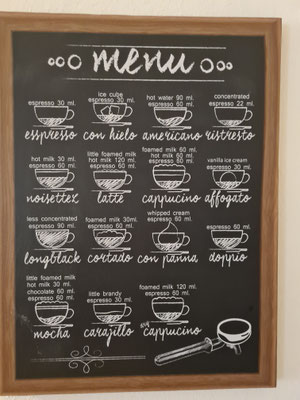 menu
espresso 30 ml.
espresso
ice cube
espresso 30 ml.
con hielo
hot water 90 ml.
espresso 60 ml.
americano
concentrated
espresso 22 ml.
ristresto
hot milk 30 ml.
espresso 60 ml.
noisettex
little foamed milk
hot milk 120 ml.
espresso 60 ml.
latte
foamed milk 60 ml.
hot milk 60 ml.
espresso 60 ml.
cappucino
vanilla ice cream
espresso 30 ml.
affogato
less concentrated
espresso 90 ml.
longblack
foamed milk 30ml.
espresso 60 ml.
cortado
whipped cream
espresso 60 ml.
con panna
espresso 60 ml.
doppio
little foamed milk
hot milk 30 ml.
chocolate 60 ml.
espresso 60 ml.
mocha
little brandy
espresso 30 ml.
carajillo
foamed milk 120 ml.
espresso 60 ml.
cappucino